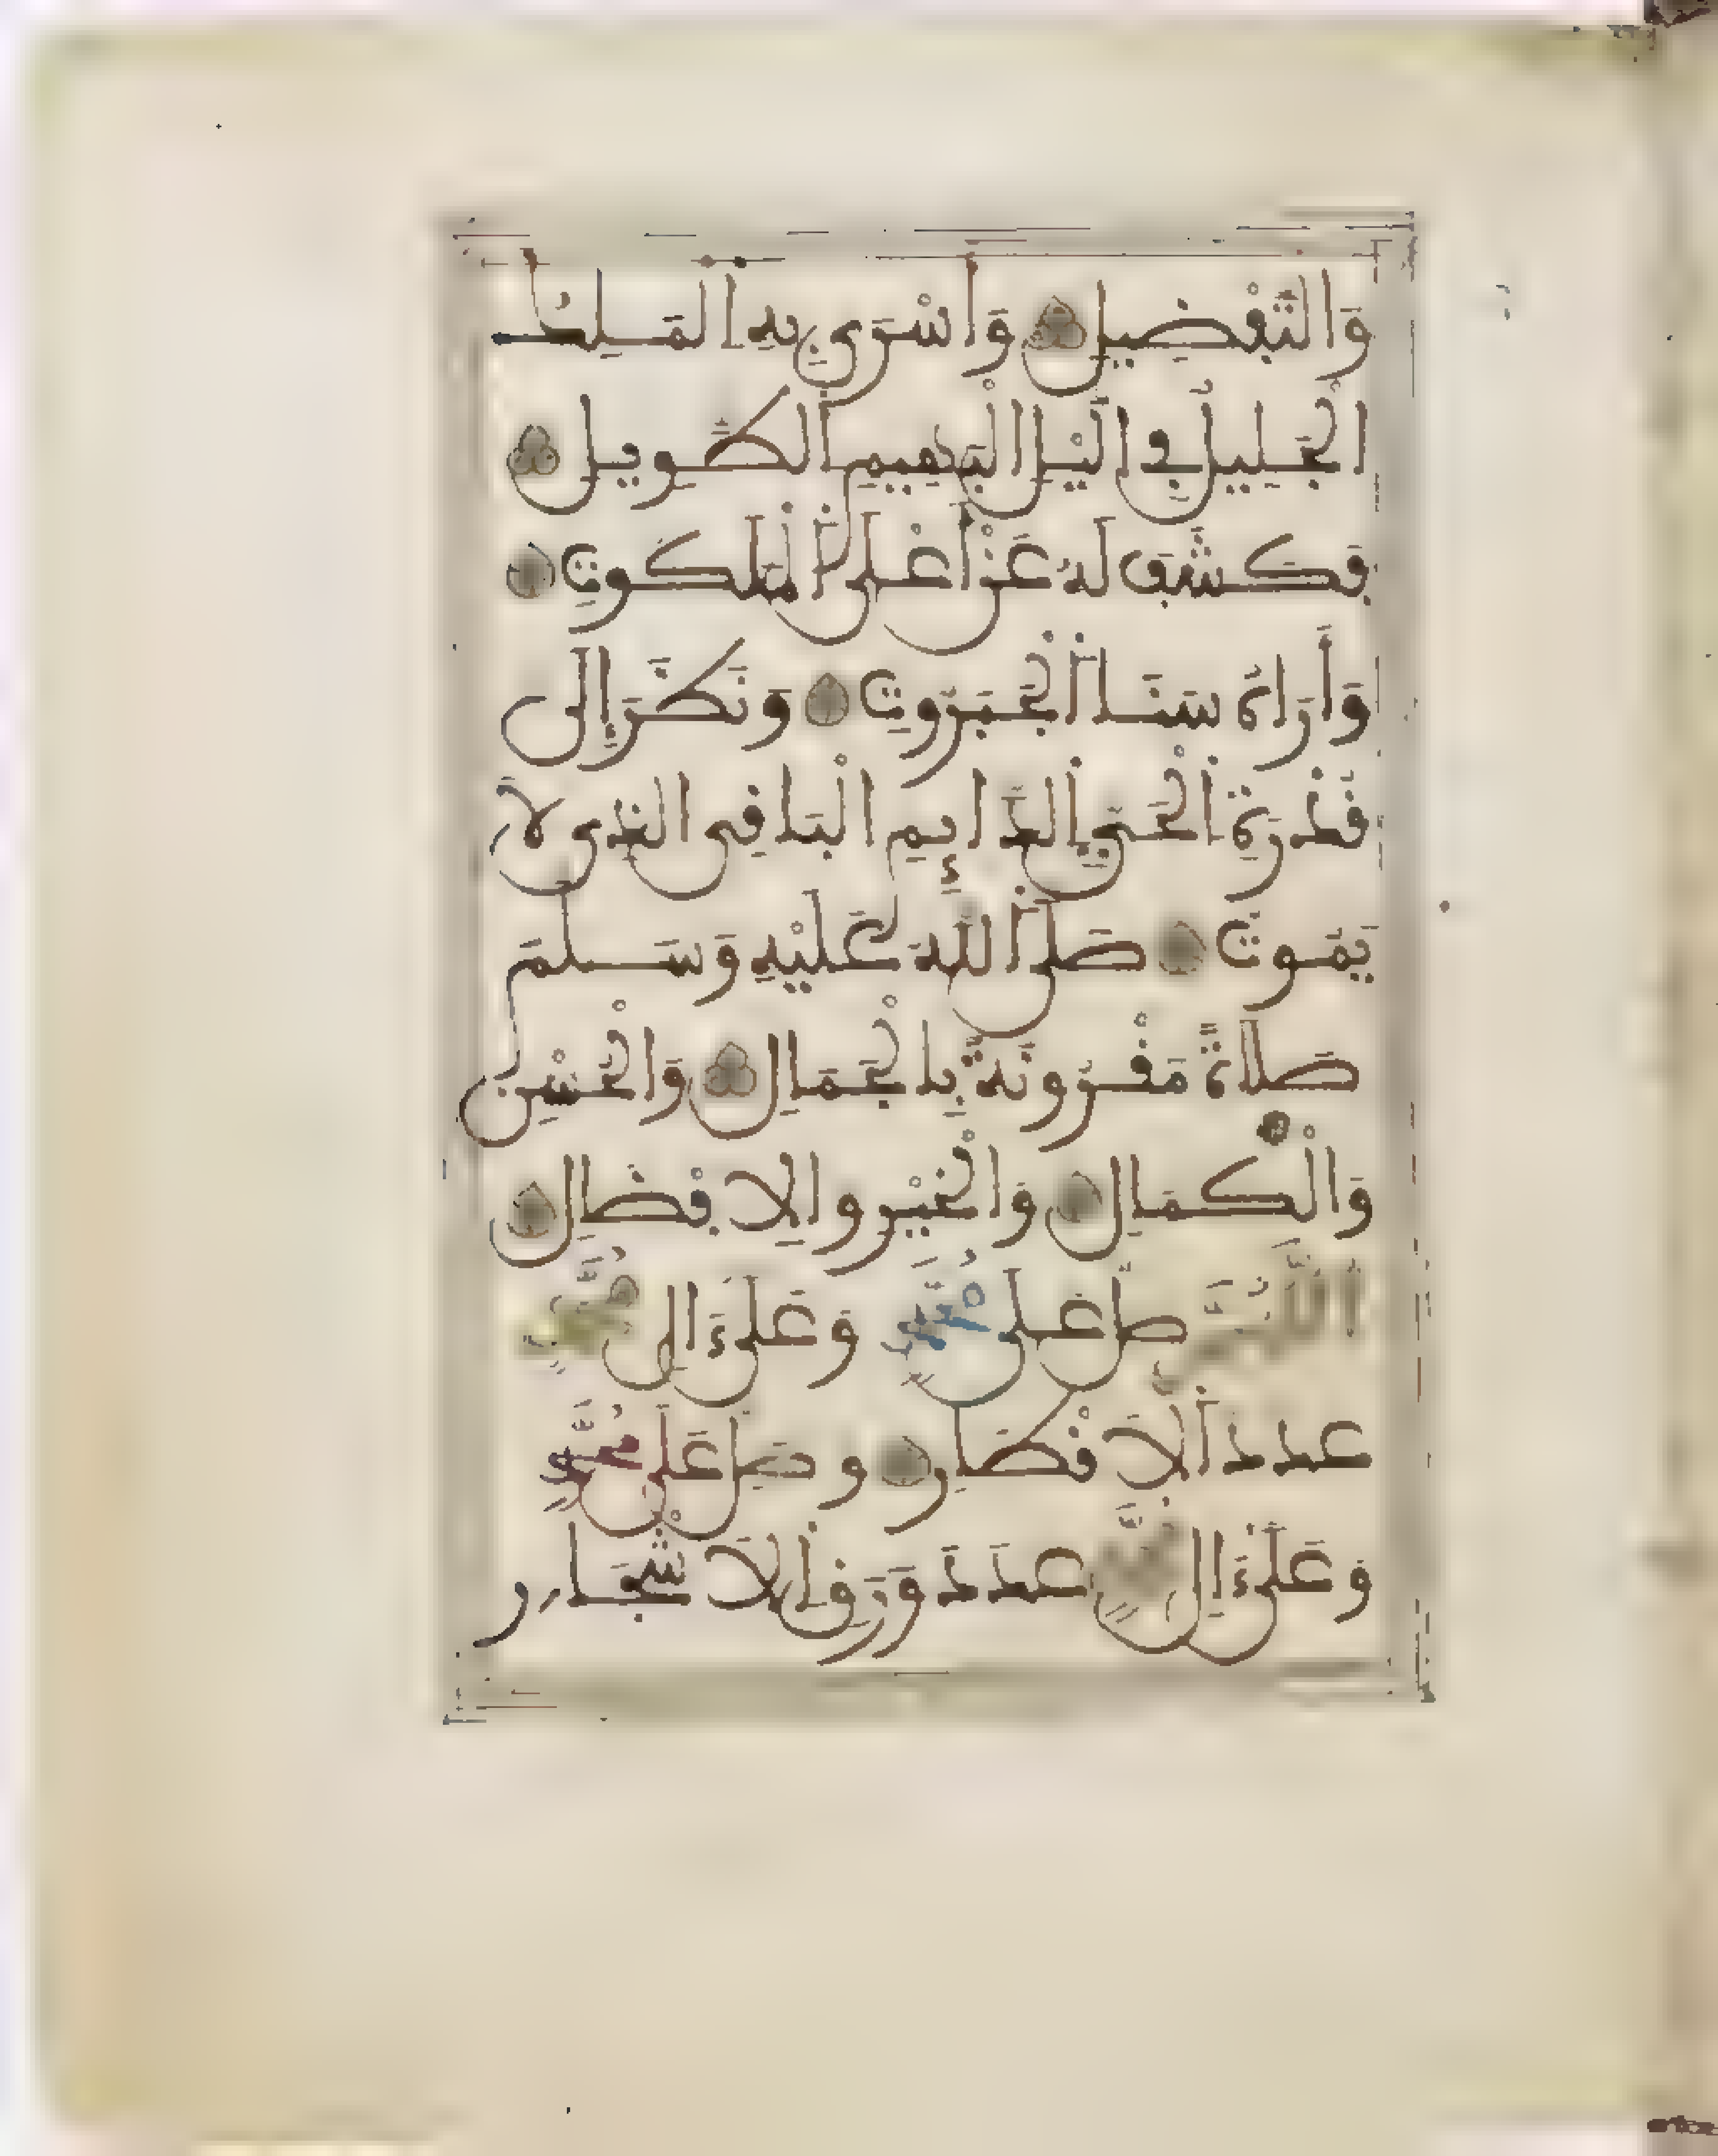 وَالتَّفْضِيلِ وَأَسْرَى بِهِ الْمَلِكُ
الْجَلِيلُ فِي الَّيْلِ الْبَهِيمِ الطَّوِيلِ
فَكَشَفَ لَهُ عَنْ أَعْلَى الْمَلَكُوتِ
وَأَرَاهُ سَنَاءَ الْجَبَرُوتِ وَنَظَرَ إِلَى
قُدْرَةِ الْحَيِّ الدَّائِمِ الْبَاقِي الَّذِي لَا
يَمُوتُ صَلَّى اللَّهُ عَلَيْهِ وَسَلَّمَ
صَلَاةً مَقْرُونَةً بِالْجَمَالِ وَالْحُسْنِ
وَالْكَمَالِ وَالْخَيْرِ وَالْإِفْضَالِ
اللَّهُمَّ صَلِّ عَلَى مُحَمَّدٍ وَعَلَى ءَالِ مُحَمَّدٍ
عَدَدَ الْأَقْطَارِ وَصَلِّ عَلَى مُحَمَّدٍ
وَعَلَى ءَالِ مُحَمَّدٍ عَدَدَ وَرَقِ الْأَشْجَارِ وَ